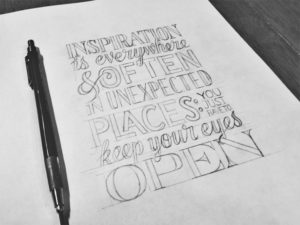 INSPIRATION
is everywhere
& OFTEN
IN UNEXPECTED
PLACES: YOU JUST HAVE TO
keep your eyes
OPEN